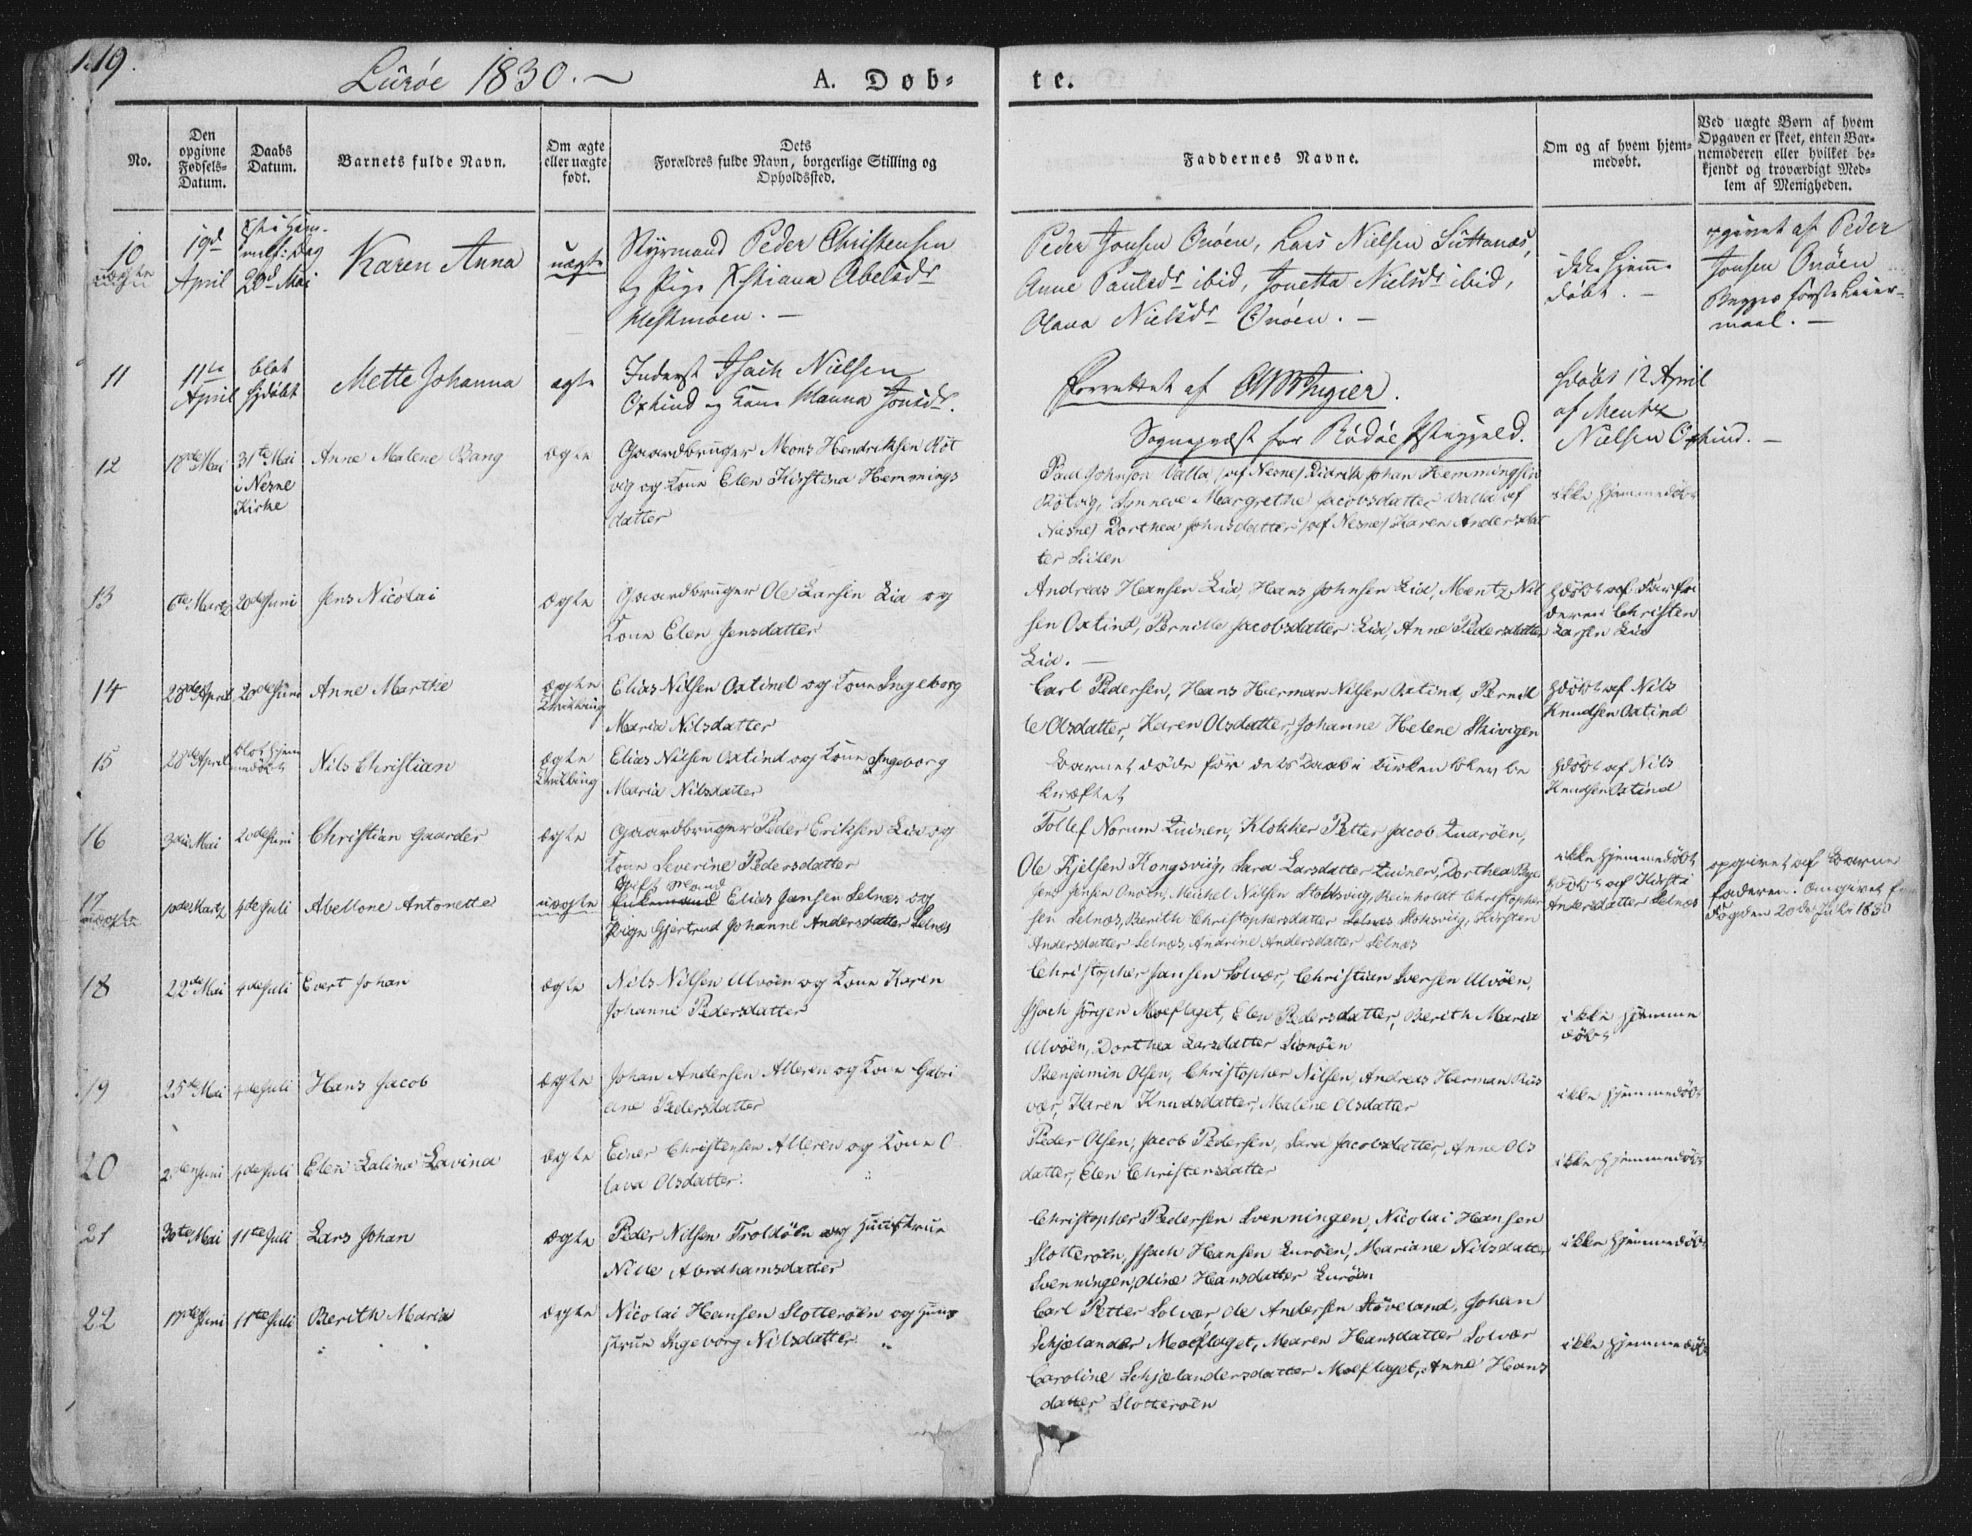 119.
Lurøe 1830.
A. Døb-
te.
No.
Den opgivne Fødsels-Datum.
Daabs Datum.
Barnets fulde Navn.
Om ægte eller uægte født.
Dets Forældres fulde Navn, borgerlige Stilling og Opholdssted.
Faddernes Navne.
Om og af hvem hjemmedøbt.
Ved uægte Børn af hvem Opgaven er skeet, enten Barnemoderen eller hvilket bekjendt og troværdigt Medlem af Menigheden.
10 uægte
19d April
20d Mai
Karen Anna
uægte
Styrmand Peder Christensen
og Pige Christiana Abelsdr
Hestmoen. —
Peder Jonsen Onøen, Lars Nielsen Suttanæs,
Anne Paulsdr ibid, Jonetta Nielsdr ibid,
Olava Nielsdr Onøen. —
ikke hjemmedøbt. —
opgivet af Peder
Jonsen Onøen
Begges første Leiermaal. —
11
11te April
blot hjdøbt
Mette Johanna
ægte
Inderst Isach Nielsen
Oxtind og Kone Hanna Jonsdr.
Forrettet af
Sognepræst for Rødøe Præstegjeld.
hdøbt 12 April
af Mentz
Nielsen Oxtind. —
12
31te Mai
i Nesne
Kirke
Anne Malene Bang
ægte
Gaardbruger Mons Hendriksen Røt
vig og Kone Elen Kirstina Hemmings
datter
Paul Johnson Valla (af Nesne) Didrik Johan Hemmingsen
Røtvig, Synneve Margrethe Jacobsdatter Valla af
Nesne) Dorthea Johnsdatter (af Nesne) Karen Andersdat
ter Silen
ikke hjemmedøbt
13
6te Martz
20de Juni
Jens Nicolai
ægte
Gaardbruger Ole Larsen Lia og
Kone Elen Jensdatter
Andreas Hansen Lia, Hans Johnsen Lia, Mentz Nil
sen Oxtind, Pernille Jacobsdatter Lia, Anne Pedersdatter
Lia. —
hdøbt af Farfa
deren Christen
Larsen Lia
14
28de April
20de Juni
Anne Marthe
ægte
Tvilling
Elias Nilsen Oxtind og Kone Ingeborg
Maria Nilsdatter
Carl Pedersen, Hans Herman Nilsen Oxtind, Pernil
le Olsdatter, Karen Olsdatter, Johanne Helene Skivigen
hdøbt af Nils
Knudsen Oxtind
15
28de April
blot hjem
medøbt
Nils Christian
ægte
Tvilling
Elias Nilsen Oxtind og Kone Ingeborg
Maria Nilsdatter
Barnet døde før dets Daab i Kirken blev be
kræftet
hdøbt af Nils
Knudsen Oxtind
16
3die Mai
20de Juni
Christian Gaarder
ægte
Gaardbruger Peder Eriksen Lia og
Kone Severine Pedersdatter
Tollef Norum Zuinen, Klokker Petter Jacob Luarøen,
Ole Kjelsen Kongsviig, Sara Larsdatter Zuinen, Dorthea
ikke hjemmedøbt
17 uægte
4de Juli
Abellone Antonette
uægte
Gift Mand
Enkemand Elias Jansen Selnæs og
Pige Gjertrud Johanne Andersdatter Selnæs
Jens Jensen Onøen, Michel Nilsen Stokvig, Reinholdt Christopher
sen Selnæs, Berith Christophersdatter Selnæs Stokvig, Kirsten
Andersdatter Selnæs, Andrine Andersdatter Selnæs
hdøbt af Kirsti
Andersdatter Selnæs
opgivet af Barne
faderen. Omgivet
Fogden 20de Juli 1830
18
22de Mai
4de Juli
Evert Johan
ægte
Nils Nilsen Alvøen og Kone Karen
Johanne Pedersdatter
Christopher Jansen Solvær, Christian Iversen Alvøen,
Isach Jørgen Moeflaget, Elen Pedersdatter, Berith Maria
Alvøen, Dorthea Larsdatter Sionøen
ikke hjemme
døbt
19
25de Mai
4de Juli
Hans Jacob
ægte
Johan Andersen Alleren og Kone Gabri
ane Pedersdatter
Benjamin Olsen, Christopher Nilsen, Andreas Herman Rus
vær, Karen Knudsdatter, Malene Olsdatter
ikke hjemmedøbt
20
2den Juni
4de Juli
Elen Lalina Lavina
ægte
Einer Christensen Alleren og Kone O
lava Olsdatter.
Peder Olsen, Jacob Pedersen, Sara Jacobsdatter, Anne Ols
datter, Elen Christensdatter
ikke hjemmedøbt
21
30te Mai
11te Juli
Lars Johan
ægte
Peder Nilsen Troldøen og Hustrue
Nille Abrahamsdatter
Christopher Pedersen Svenningen, Nicolai Hansen
Slotterøen, Isach Hansen Lurøen, Mariane Nilsdatter
Svenningen, Oline Hansdatter Lurøen
ikke hjemmedøbt
22
11te Juli
Berith Maria
ægte
Nicolai Hansen Slotterøen og Hus
strue Ingeborg Nilsdatter
Carl Petter Solvær, Ole Andersen Støveland, Johan
Schjelander Moeflaget, Maren Hansdatter Solvær
Caroline Schjelandersdatter Moeflaget, Anne Hans
datter Slotterøen
ikke hjemmedøbt